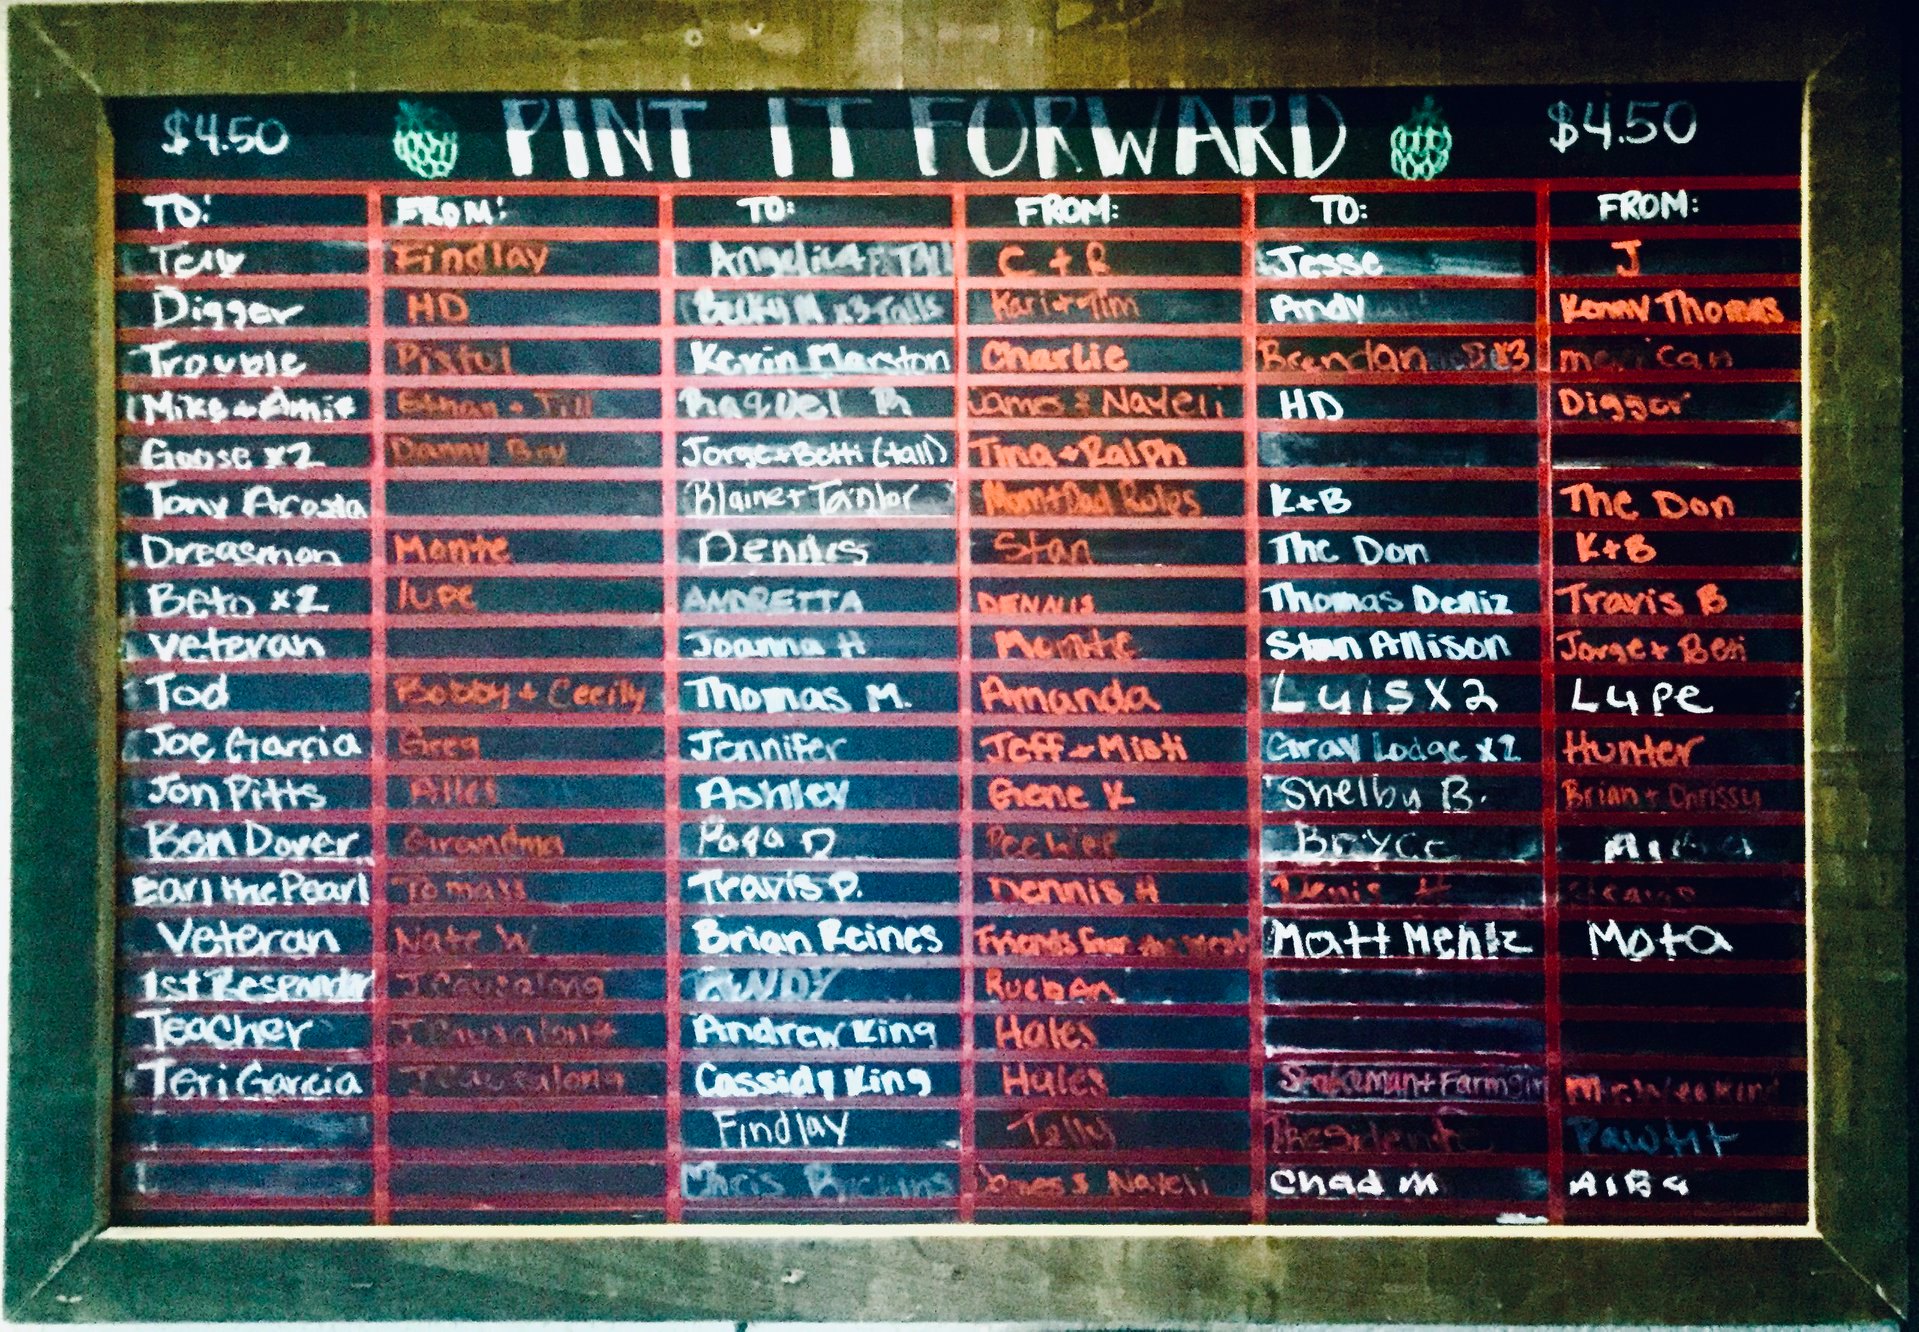 $4.50 PINT IT FORWARD $4.50
TO: FROM: TO: FROM: TO: FROM:
Findlay Angelica C + B Jesse J
Digger HD Becky M x3 Talls Kari + Tim Andy Kenny Thomas
Trouble Pistol Kevin Marston Charlie Brendan x3
Mike + Amie Ethan + Jill Raquel R James & Nayeli HD Digger
Goose x2 Danny Boy Jorge + Betti (tall) Tina + Ralph
Tony Acosta Blaine + Taylor Mom + Dad Rules K+B The Don
Dreasmon Monte Dennis Stan The Don K+B
Beto x2 lupe ANDRETTA DENNIS Thomas Deniz Travis B
Veteran Joanna H Monte Stan Allison Jorge + Beti
Tod Bobby + Cecily Thomas M. Amanda Luis X2 Lupe
Joe Garcia Greg Jennifer Jeff + Misti Gray Lodge x2 Hunter
Jon Pitts Ashley Gene K Shelby B. Brian + Chrissy
Ben Dover Grandma Papa D Pee Wee Bryce
Earl the Pearl Travis P. Dennis H Denis H
Veteran Nate W Brian Reines Friends from the West Matt Mentz Mota
1st Responder ANDY Rueban
Teacher Andrew King Hales
Teri Garcia Cassidy King Hales
Findlay Telly Presidente
Chris James & Nayeli Chad M